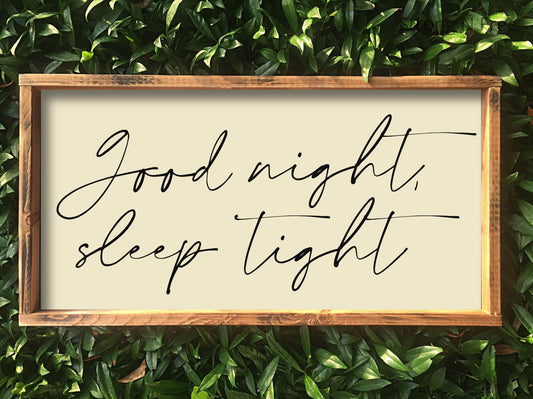 Good night,
sleep tight